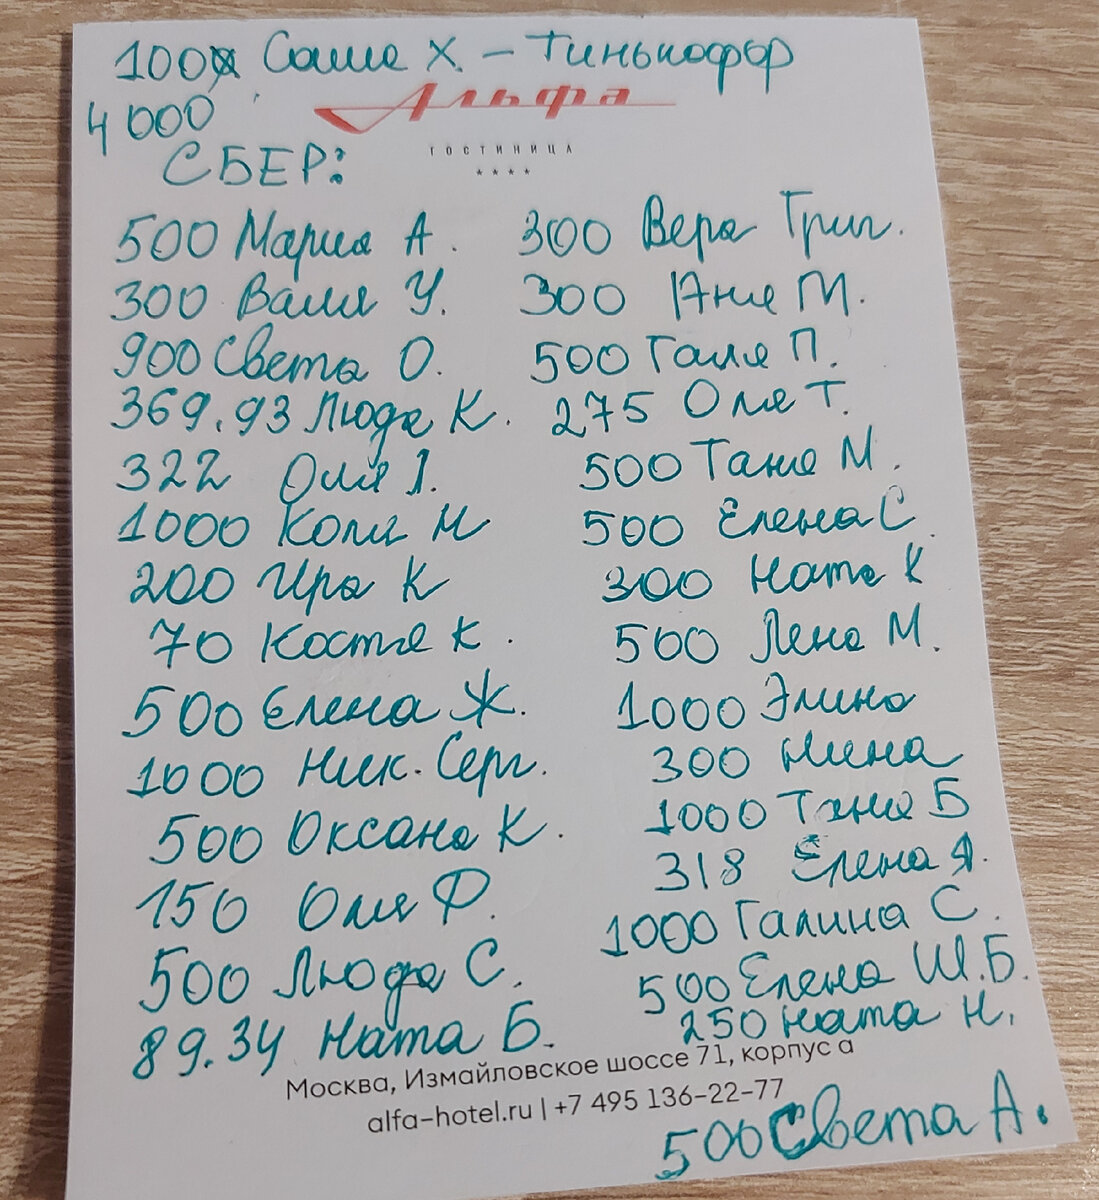 1000 Саше Х. – Тинькофф
4000
Альфа
ГОСТИНИЦА
СБЕР:
500 Мария А.
300 Валя У.
900 Света О.
369.93 Люда К.
322 Оля
1000 Коля Н
200 Ира К
70 Костя К.
500 Елена Ж.
1000 Ник. Серг.
500 Оксана К.
150 Оля Ф.
500 Люда С.
89.34 Ната Б.
300 Вера Григ.
300 Аня М.
500 Галя П.
275 Оля Т.
500 Таня М.
500 Елена С.
300 Ната К
500 Лена М.
1000 Элина
300 Нина
1000 Таня Б
318 Елена Я.
1000 Галина С.
500 Елена Ш.Б.
250 Ната Н.
Москва, Измайловское шоссе 71, корпус а
alfa-hotel.ru | +7 495 136-22-77
500 Света А.